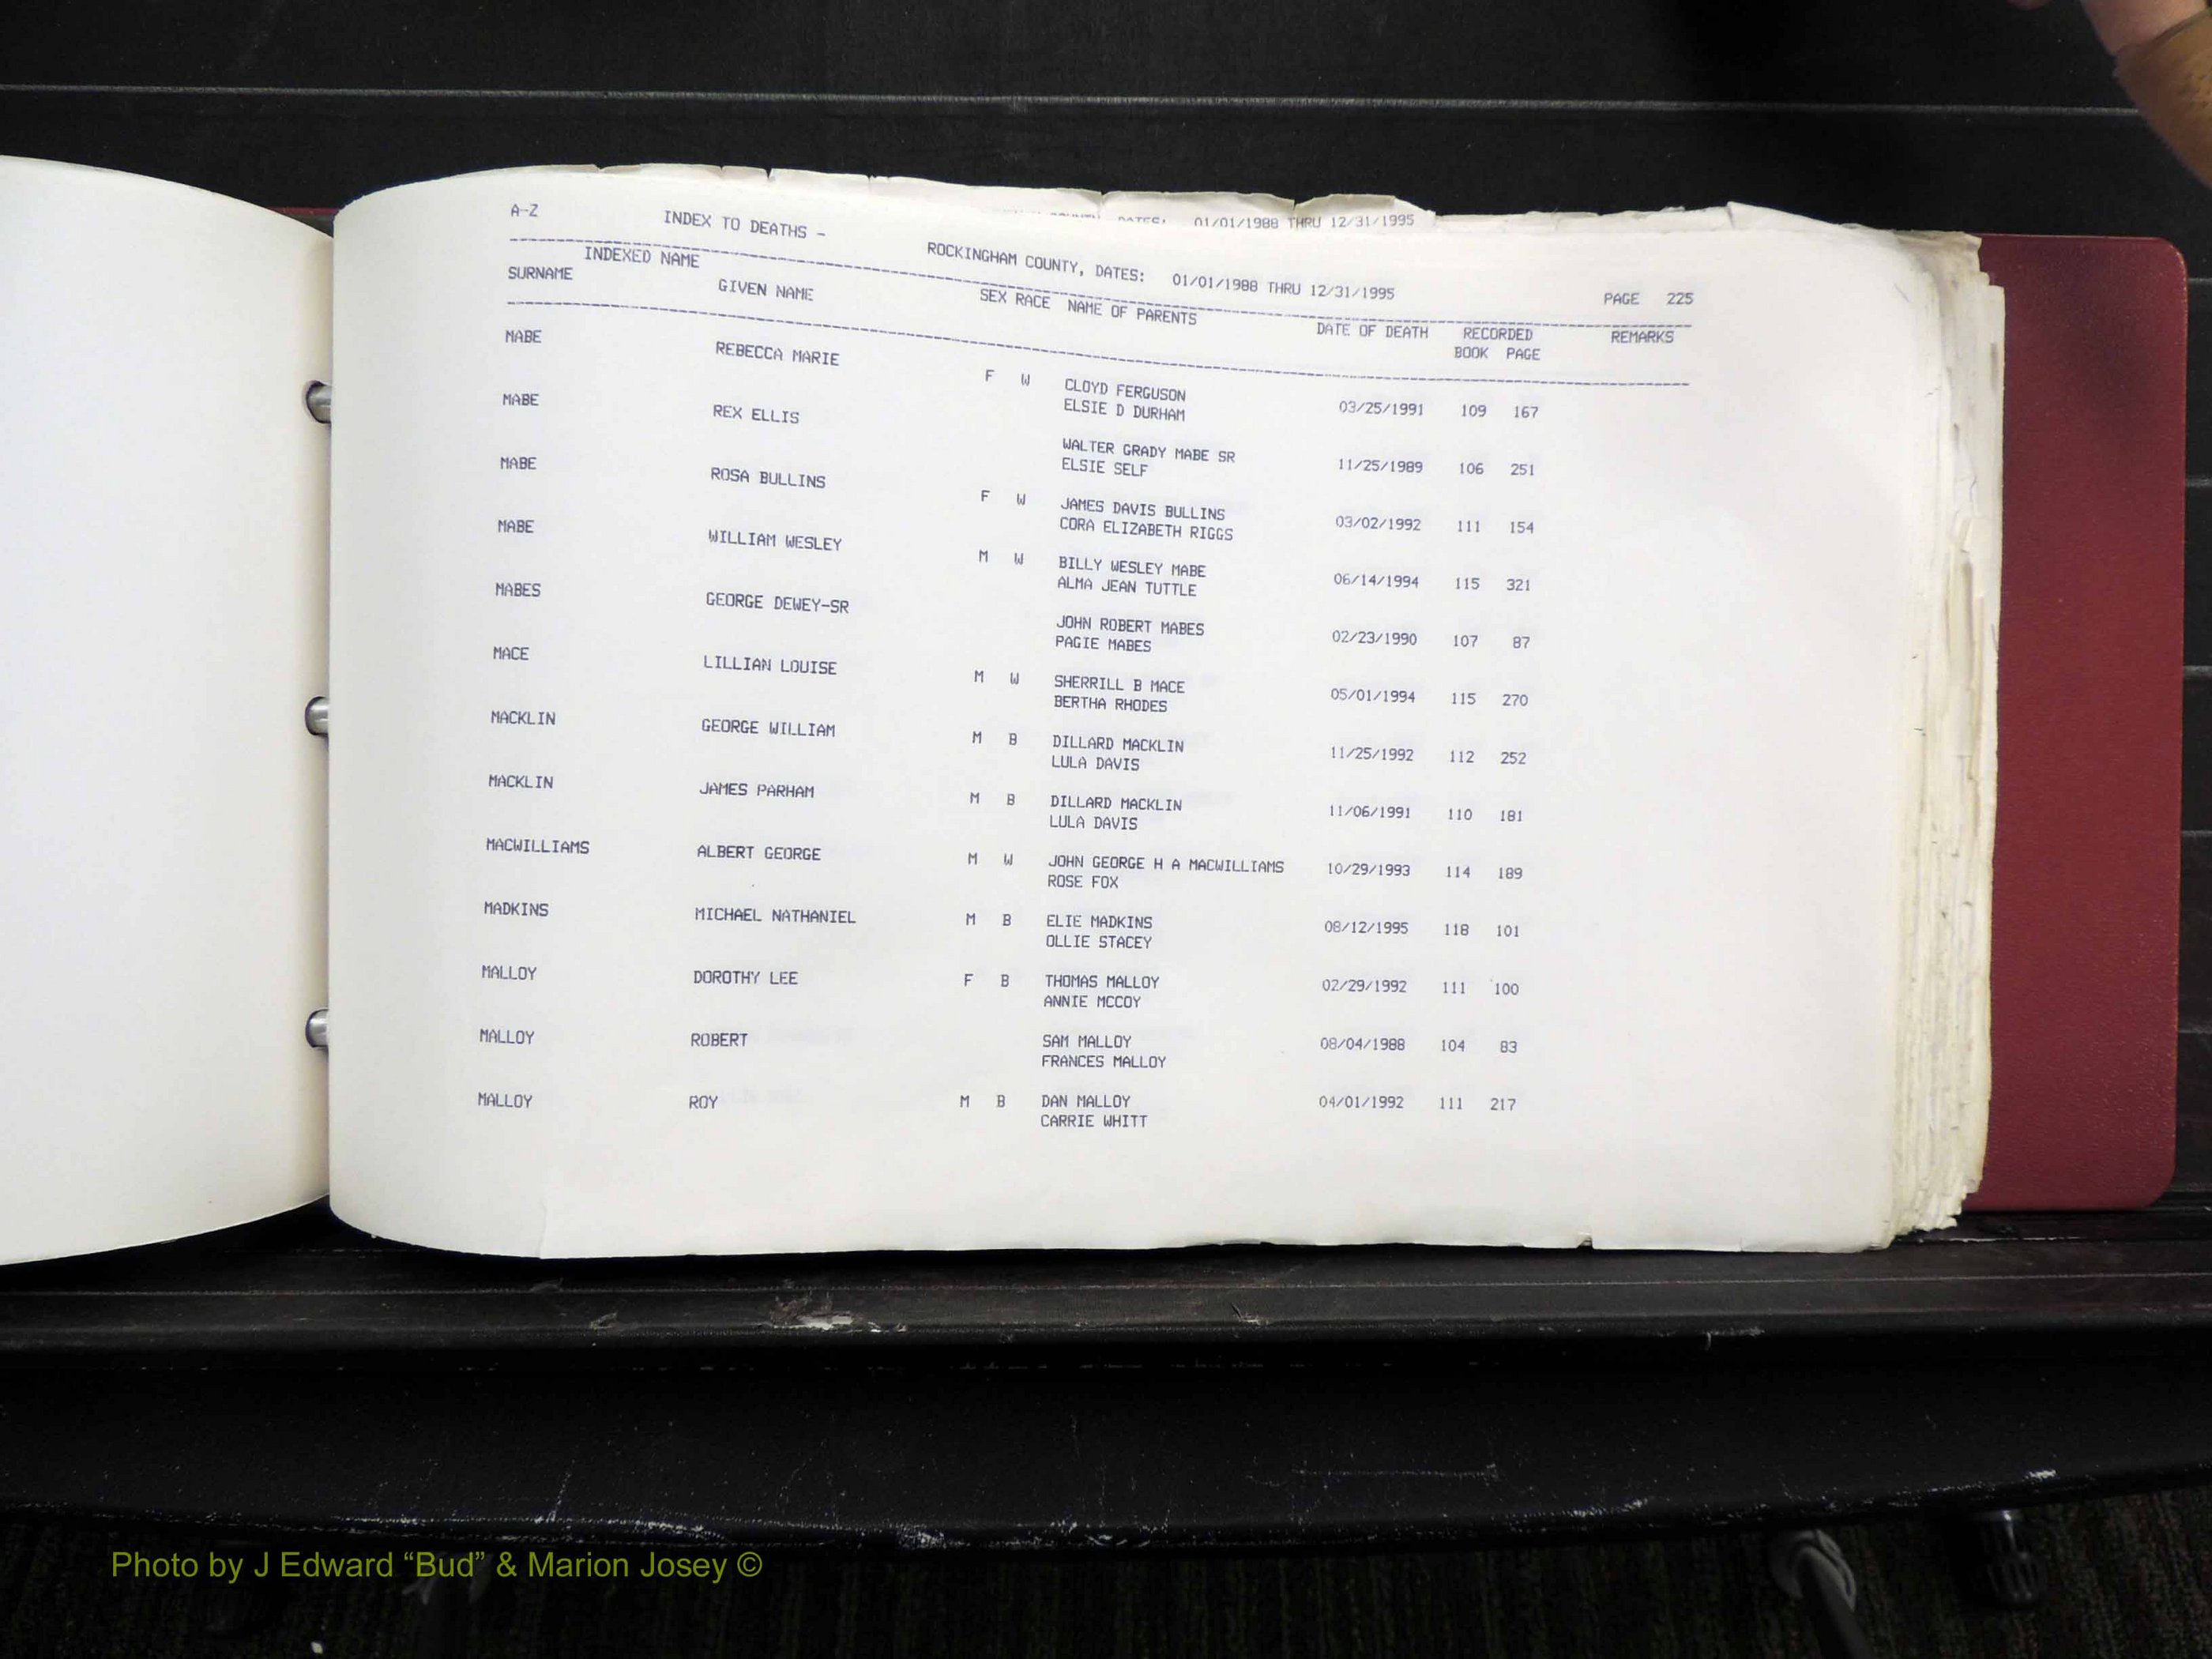 DATES: 01/01/1988 THRU 12/31/1995
A-Z INDEX TO DEATHS - ROCKINGHAM COUNTY, DATES: 01/01/1988 THRU 12/31/1995 PAGE 225
INDEXED NAME
SURNAME GIVEN NAME SEX RACE NAME OF PARENTS DATE OF DEATH RECORDED REMARKS
BOOK PAGE
MABE REBECCA MARIE F W CLOYD FERGUSON 03/25/1991 109 167
ELSIE D DURHAM
MABE REX ELLIS WALTER GRADY MABE SR 11/25/1989 106 251
ELSIE SELF
MABE ROSA BULLINS F W JAMES DAVIS BULLINS 03/02/1992 111 154
CORA ELIZABETH RIGGS
MABE WILLIAM WESLEY M W BILLY WESLEY MABE 06/14/1994 115 321
ALMA JEAN TUTTLE
MABES GEORGE DEWEY-SR JOHN ROBERT MABES 02/23/1990 107 87
PAGIE MABES
MACE LILLIAN LOUISE M W SHERRILL B MACE 05/01/1994 115 270
BERTHA RHODES
MACKLIN GEORGE WILLIAM M B DILLARD MACKLIN 11/25/1992 112 252
LULA DAVIS
MACKLIN JAMES PARHAM M B DILLARD MACKLIN 11/06/1991 110 181
LULA DAVIS
MACWILLIAMS ALBERT GEORGE M W JOHN GEORGE H A MACWILLIAMS 10/29/1993 114 189
ROSE FOX
MADKINS MICHAEL NATHANIEL M B ELIE MADKINS 08/12/1995 118 101
OLLIE STACEY
MALLOY DOROTHY LEE F B THOMAS MALLOY 02/29/1992 111 100
ANNIE MCCOY
MALLOY ROBERT SAM MALLOY 08/04/1988 104 83
FRANCES MALLOY
MALLOY ROY M B DAN MALLOY 04/01/1992 111 217
CARRIE WHITT
Photo by J Edward “Bud” & Marion Josey ©